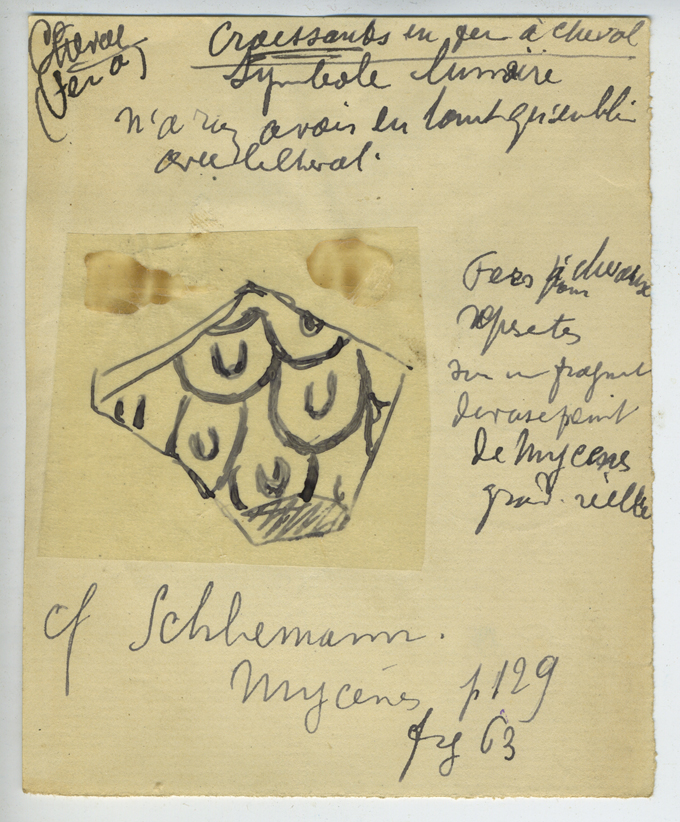 Cheval
(Fer à)
Croissants en fer à cheval
Symbole lunaire
n'a rien à voir en tout
avec le cheval.
Fers à chevaux
sur un fragment
de vase peint
de Mycènes
grand. réelle
cf Schliemann.
Mycènes p 129
fig 63